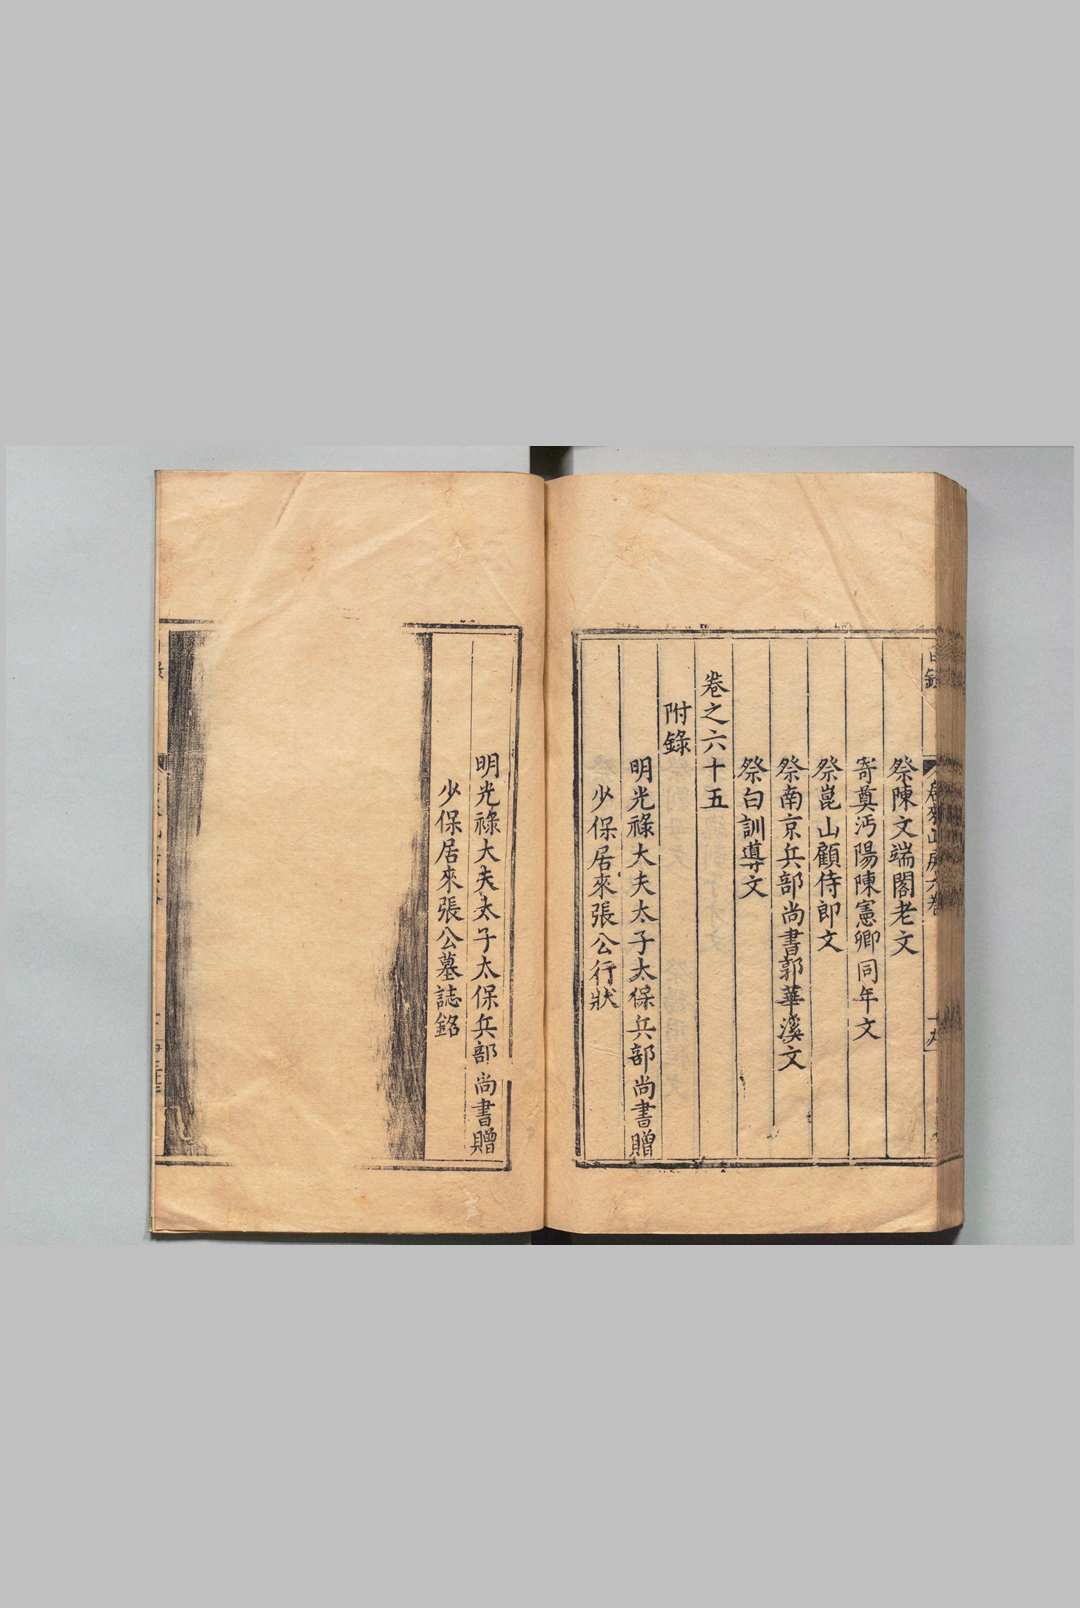 目錄
祭陳文端閣老文
寄奠沔陽陳憲卿同年文
祭崑山顧侍郎文
祭南京兵部尚書郭華溪文
祭白訓導文
卷之六十五
附錄
明光祿大夫太子太保兵部尚書贈
少保居來張公行狀
明光祿大夫太子太保兵部尚書贈
少保居來張公墓誌銘